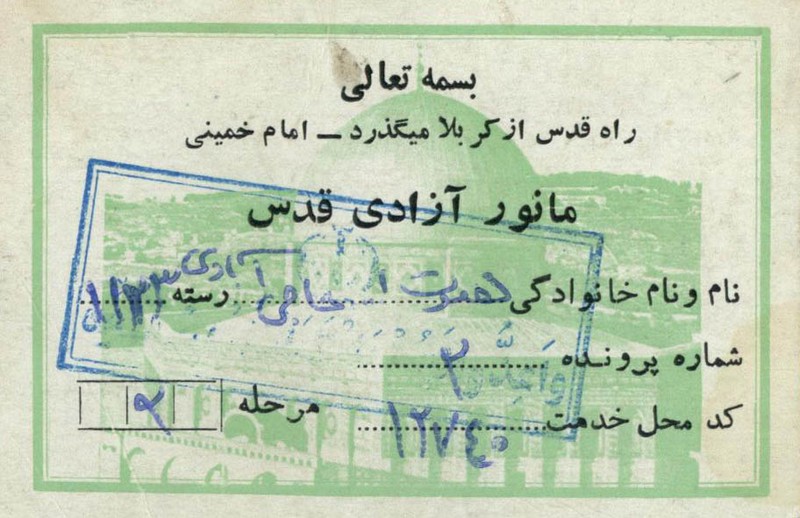 بسمه تعالی
راه قدس از کربلا میگذرد ــ امام خمینی
مانور آزادی قدس
نام و نام خانوادگی رسته
شماره پرونده ۲
کد محل خدمت ۱۲۷۴۰
مرحله ۲